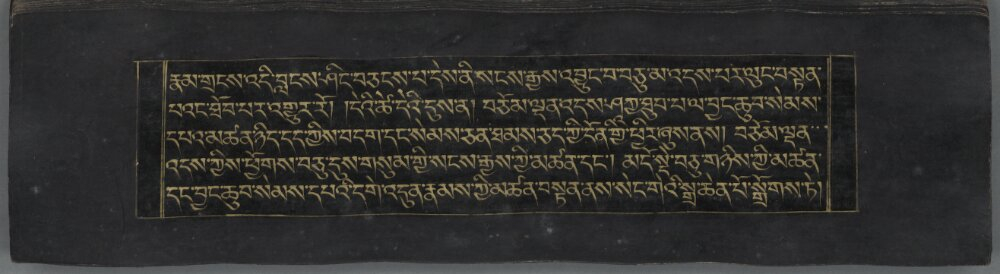 རྣམ་གྲངས་འདི་བླངས་ཤིང་བཅངས་པ་དེས་ནི་སངས་རྒྱས་འབྱུང་བ་བཅུ་མ་འདས་པར་ལུང་བསྟན་
པའང་ཐོབ་པར་འགྱུར་རོ། །དེའི་ཚེ་དེའི་དུས་ན། བཅོམ་ལྡན་འདས་ཤཱཀྱ་ཐུབ་པ་ལ་བྱང་ཆུབ་སེམས་
དཔའ་མཚན་ཉིད་དང་ཀྱིས་བདག་དང་སེམས་ཅན་ཐམས་ཅད་ཀྱི་དོན་གྱི་ཕྱིར་ཞུས་ནས། བཅོམ་ལྡན་
འདས་ཀྱིས་ཕྱོགས་བཅུ་དུས་གསུམ་གྱི་སངས་རྒྱས་ཀྱི་མཚན་དང་། མདོ་སྡེ་བཅུ་གཉིས་ཀྱི་མཚན་
དང་བྱང་ཆུབ་སེམས་དཔའི་དགེ་འདུན་རྣམས་ཀྱི་མཚན་བསྟན་ནས་སེང་གེའི་སྒྲ་ཆེན་པོ་སྒྲོགས་ཏེ།